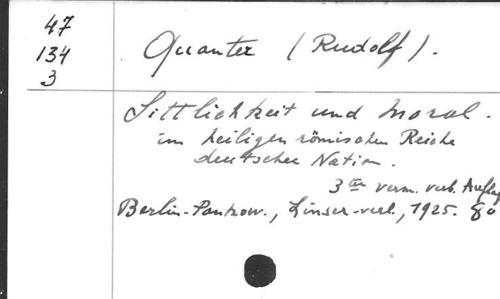 47
134
3
Quanter (Rudolf).
Sittlichkeit und Moral.
im heiligen römischen Reiche
deutscher Nation.
3te verm. verb. Auflag
Berlin-Pankow., Linser-verl., 1925. 8o